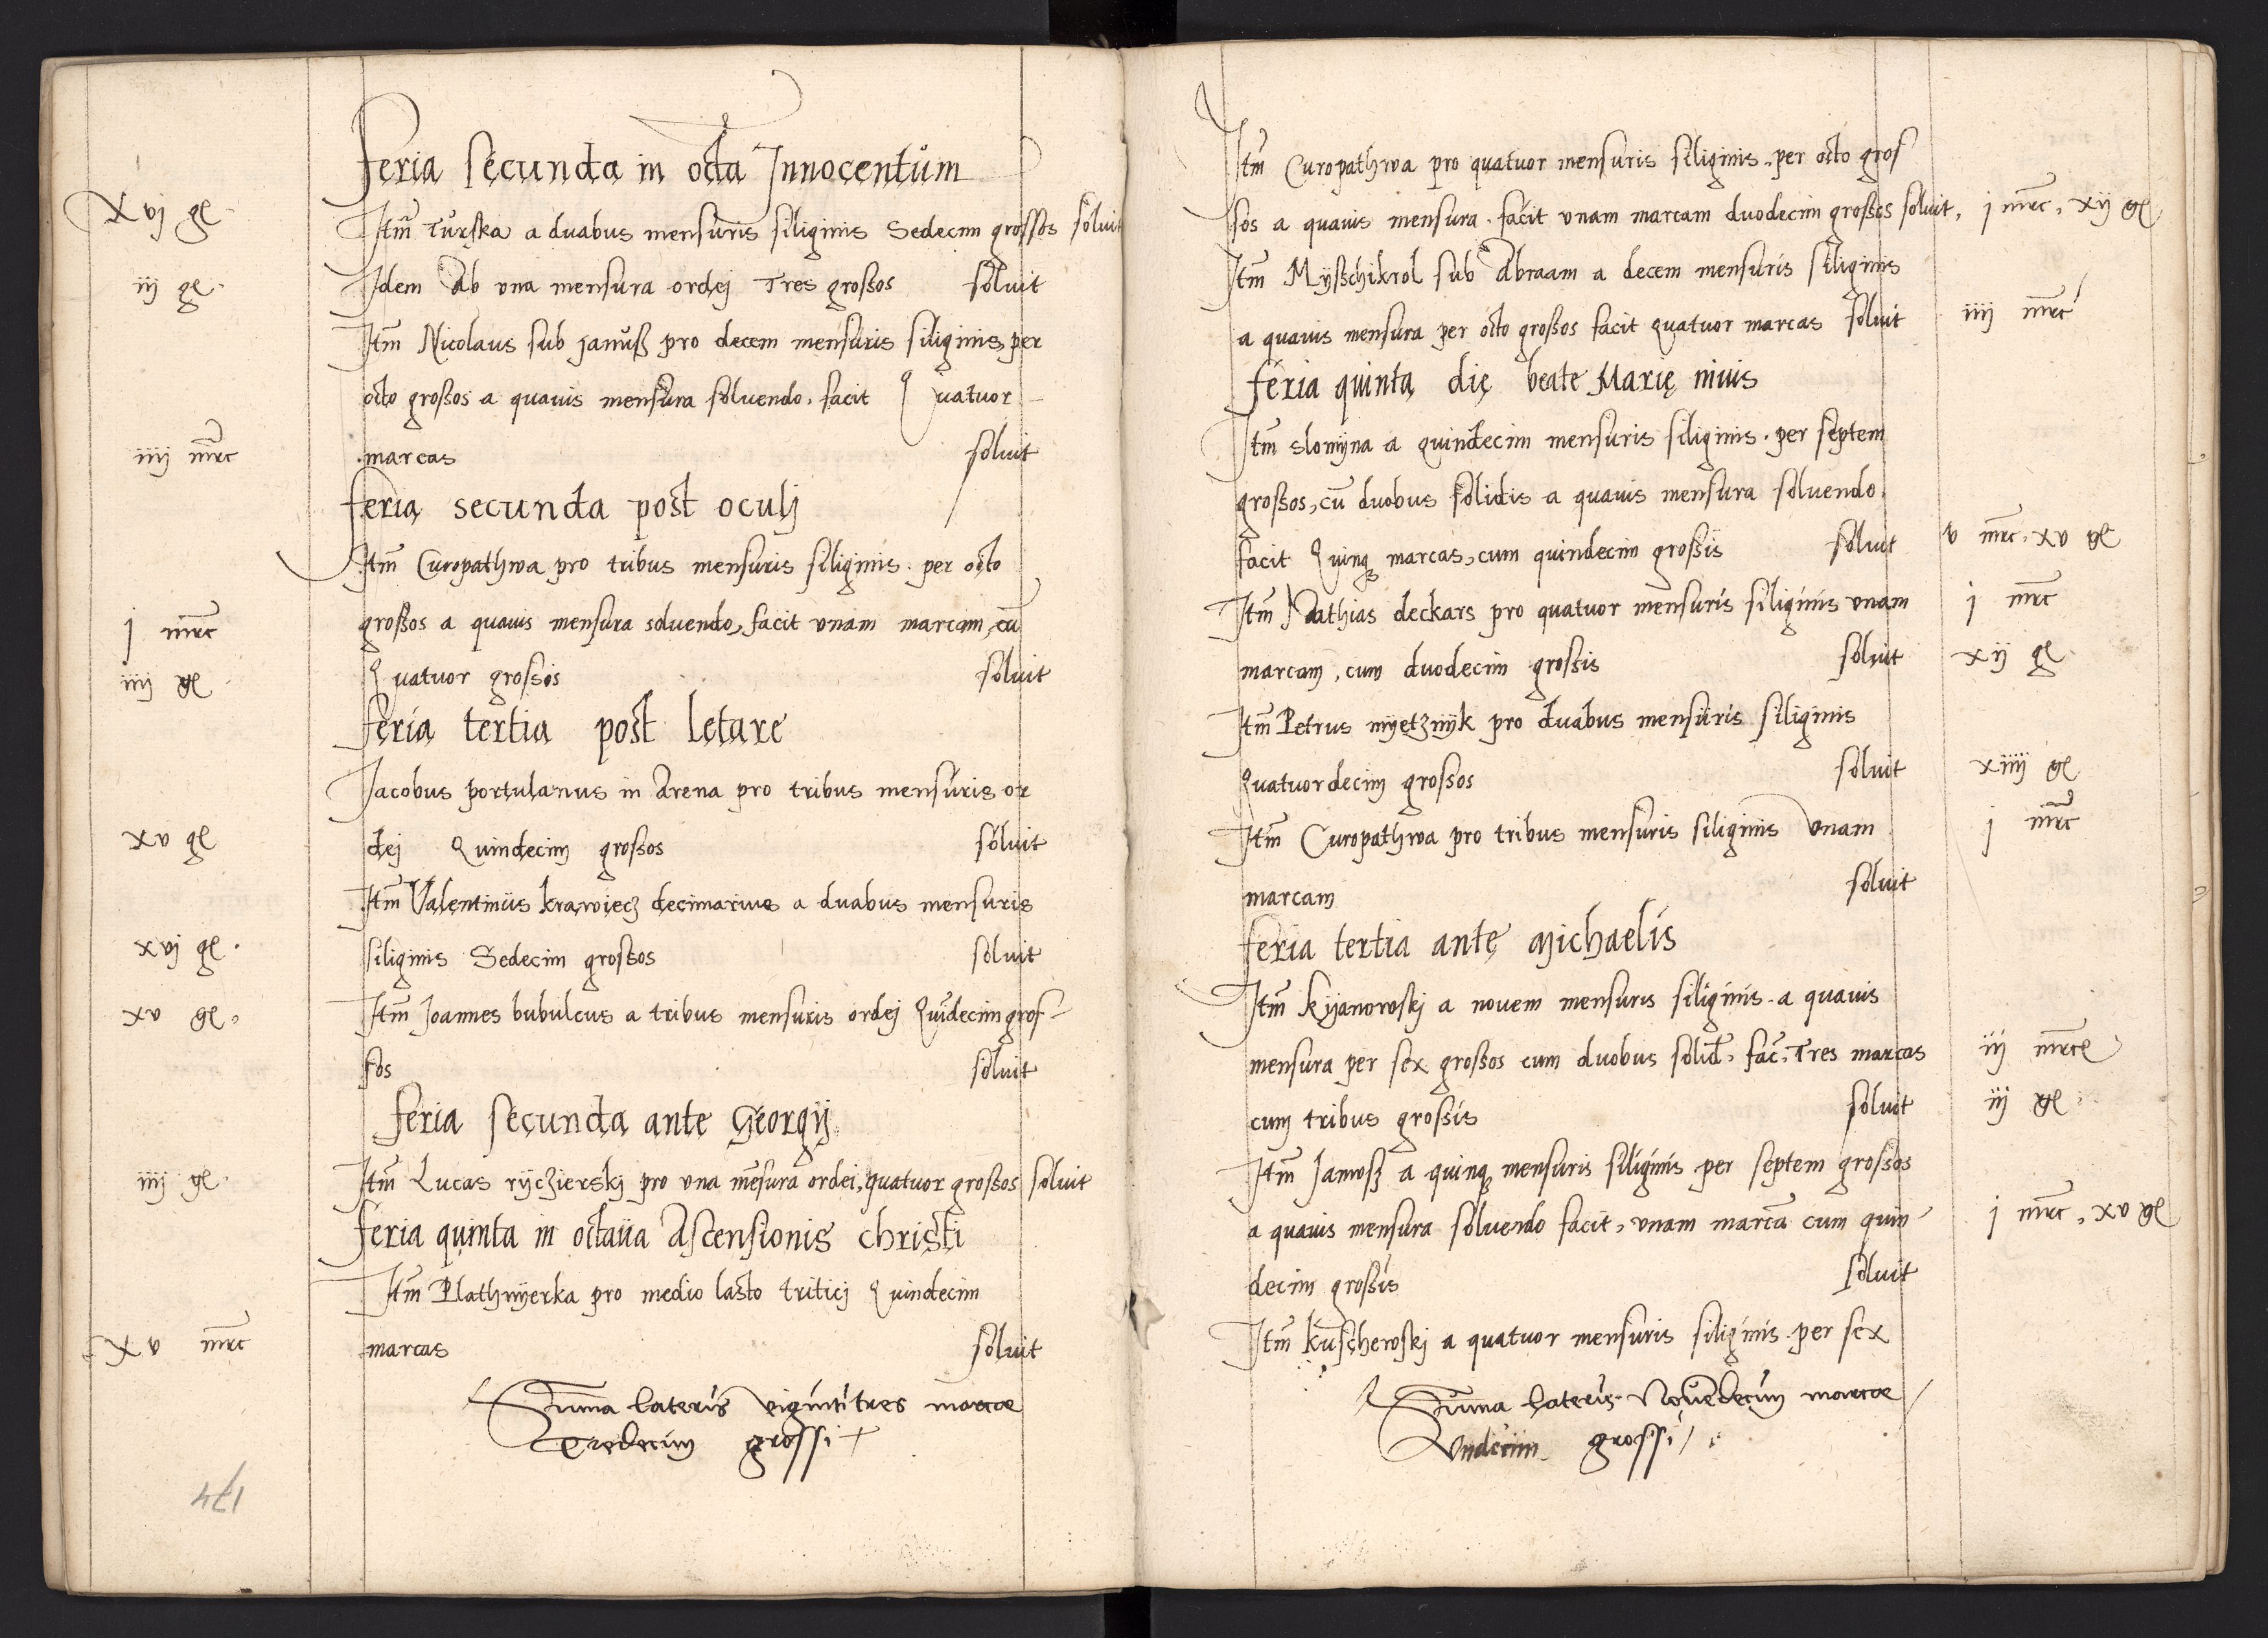 Feria secunda in octa Innocentum
xvj gr. Itm Turska a duabus mensuris siliginis Sedecim grossos soluit
iij gr. Idem Ab vna mensura ordej Tres grossos soluit
Itm Nicolaus sub januß pro decem mensuris siliginis per
octo grossos a quauis mensura soluendo. facit Quatuor
iiij mrc marcas soluit
feria secunda post oculj
Itm Curopathwa pro tribus mensuris siliginis. per octo
j mrc grossos a quauis mensura soluendo, facit vnam marcam, cū
iiij gr Quatuor grossis soluit
feria tertia post letare
Jacobus portulanus in Arena pro tribus mensuris or
xv gr dej Quindecim grossos soluit
Itm Valentinus krawiecz decimarius a duabus mensuris
xvj gr. siliginis Sedecim grossos soluit
xv gr. Itm Joannes bubulcus a tribus mensuris ordej Quīdecim gros-
sos soluit
feria secunda ante Georgij
iiij gr. Itm Lucas ryczierskj pro vna mēsura ordei, quatuor grossos soluit
feria quinta in octaua Ascensionis christi
Itm Plathnyerka pro medio lasto triticj Quindecim
xv mrc marcas soluit
Suma lateris vigintitres marce
Tredecim grossi
174
Itm Curopathwa pro quatuor mensuris siliginis. per octo gros
sos a quauis mensura. facit vnam marcam duodecim grossos soluit, j mrc, xij gr
Itm Myßchikrol sub Abraam a decem mensuris siliginis
a quauis mensura per octo grossos facit quatuor marcas soluit iiij mrc
feria quinta die beate Marię niuis
Itm slomyna a quindecim mensuris siliginis. per septem
grossos, cū duobus solidis a quauis mensura soluendo.
facit Quinqȝ marcas, cum quindecim grossis soluit v mrc. xv gr
Itm Mathias deckars pro quatuor mensuris siliginis vnam j mrc
marcam, cum duodecim grossis soluit xij gr
Itm Petrus myetznyk pro duabus mensuris siliginis
Quatuordecim grossos soluit xiiij gr
Itm Curopathwa pro tribus mensuris siliginis vnam j mrc
marcam soluit
feria tertia ante Michaelis
Itm Kyanowskj a nouem mensuris siliginis. a quauis
mensura per sex grossos cum duobus solid. fac. Tres marcas iij mrce
cum tribus grossis soluit iij gr
Itm Janusß a quinqȝ mensuris siliginis per septem grossos
a quauis mensura soluendo facit, vnam marcā cum quin- j mrc, xv gr
decim grossis soluit
Itm kuschewskj a quatuor mensuris siliginis. per sex
Suma lateris. Nouēdecim marce
Vndecim grossi